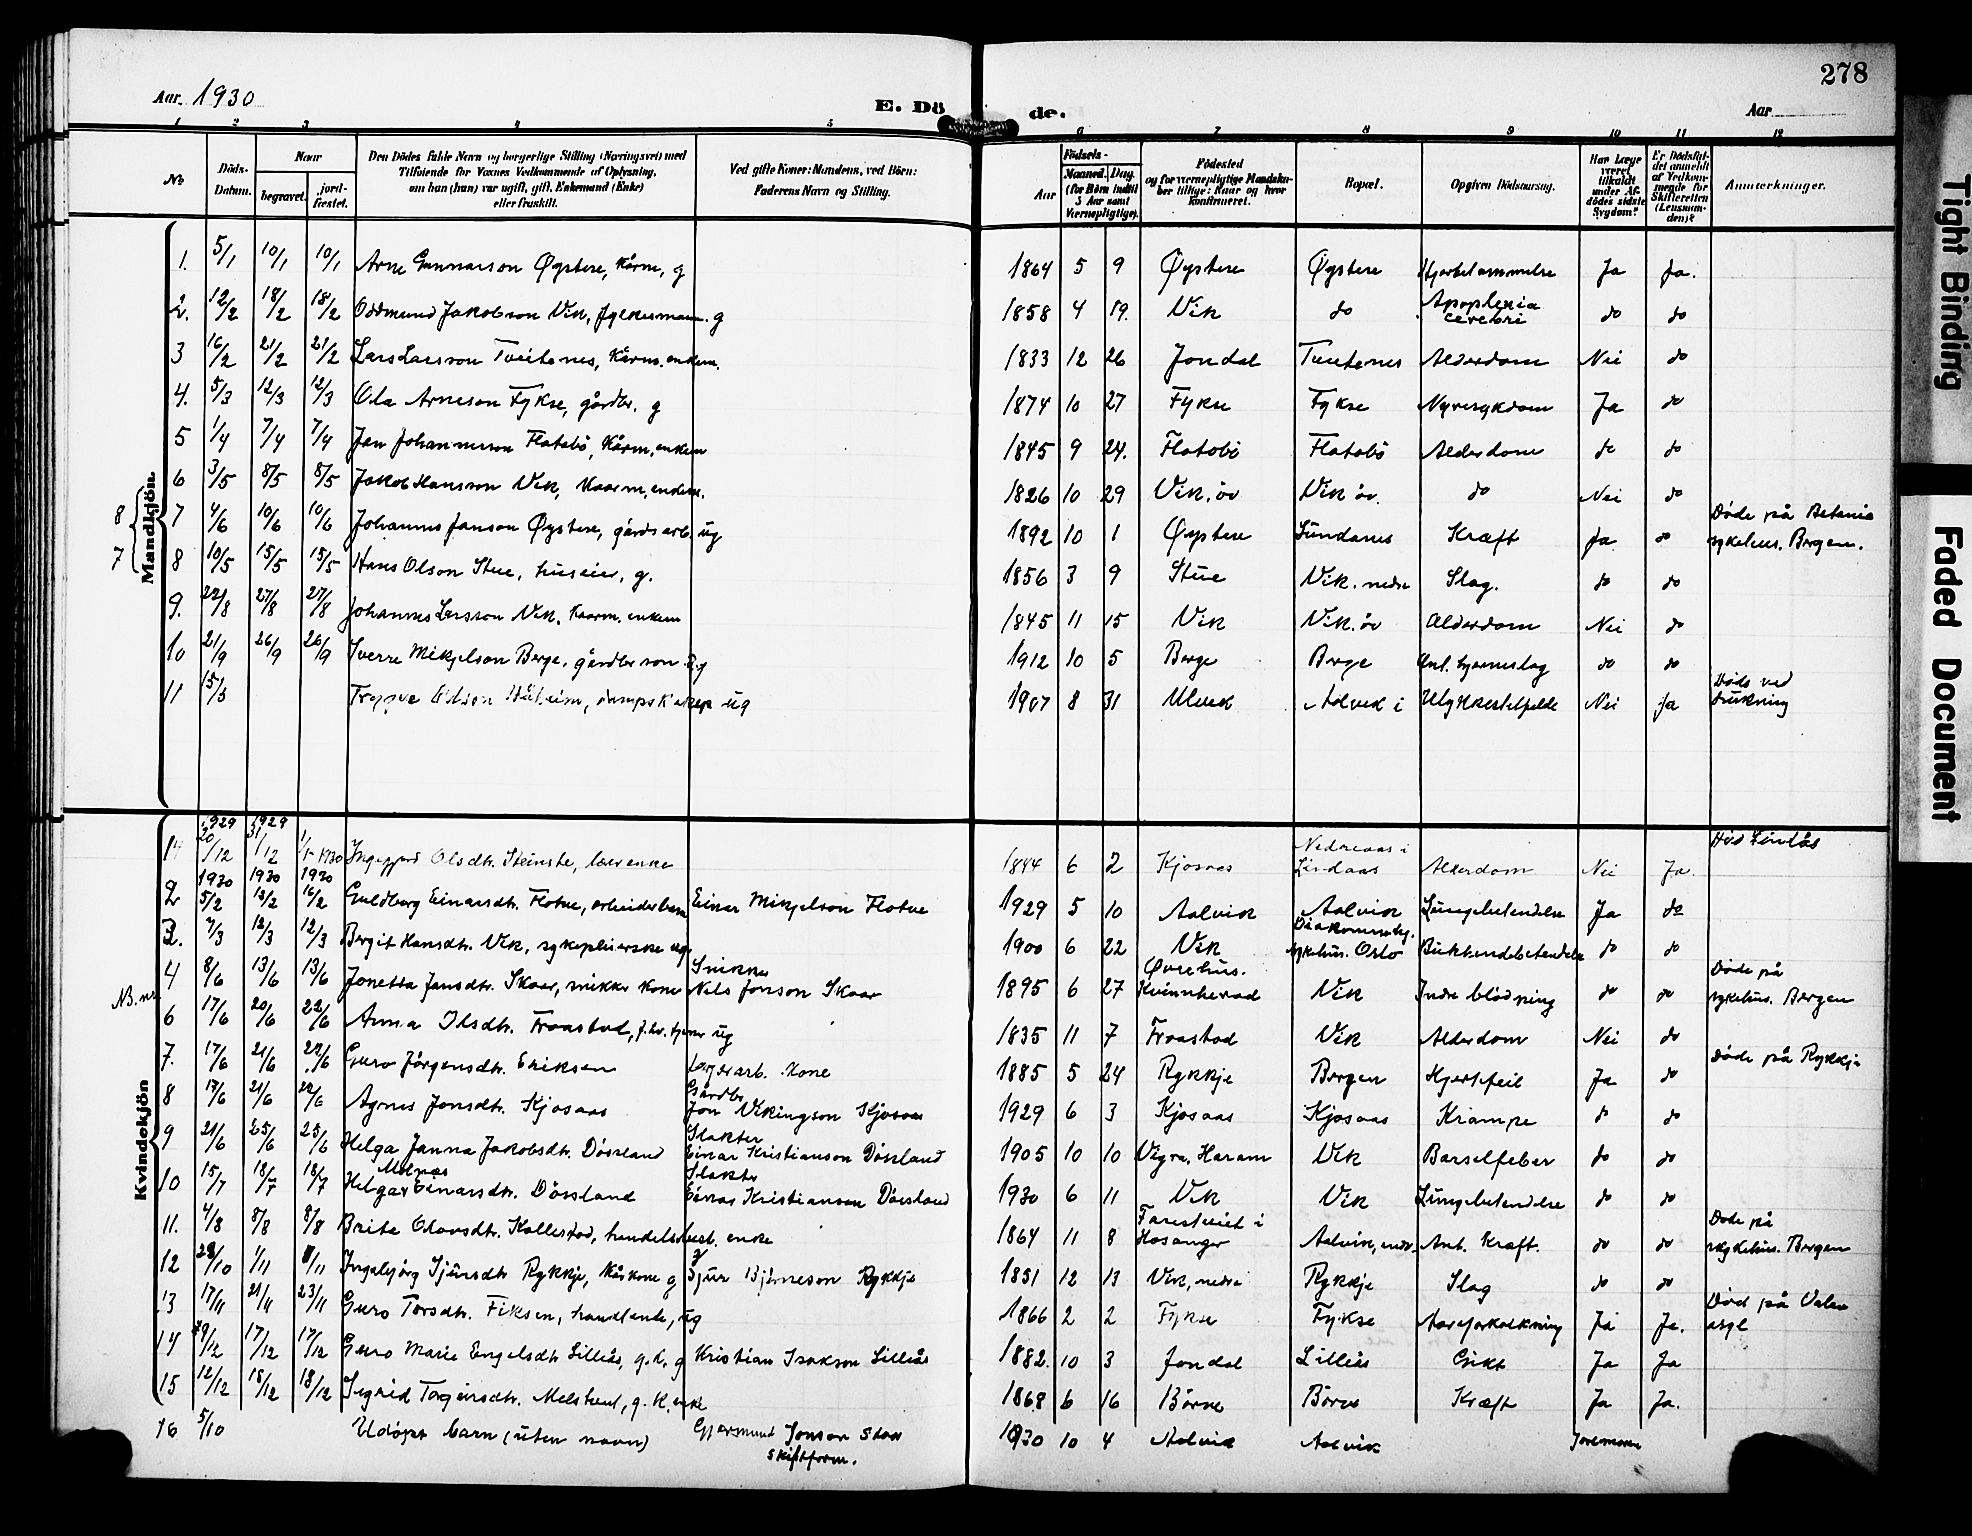 278
Aar 1930
E. Döde.
Aar
1 2 3 4 5 6 7 8 9 10 11 12
No
Döds-Datum.
Naar
begravet.
jord-fæstet.
Den Dödes fulde Navn og borgerlige Stilling (Næringsvei) med
Tilføiende for Voxnes Vedkommende af Oplysning,
om han (hun) var ugift, gift, Enkemand (Enke)
eller fraskilt.
Ved gifte Koner: Mandens, ved Börn:
Faderens Navn og Stilling.
Födsels-
Aar
Maaned. Dag.
(for Börn indtil
5 Aar samt
Værnepligtige).
Födested
og for værnepligtige Mandskaber tillige: Naar og hvor
konfirmeret.
Bopæl.
Opgiven Dödsaarsag.
Har Læge været tilkaldt under Afdödes sidste Sygdom?
Er Dödsfaldet anmeldt af Vedkommende for Skifteretten (Lensmanden)?
Anmerkninger.
Mandkjön.
8
7
1. 5/1 10/1 10/1 Arne Gunnarson Øystese, Kårm, g 1864 5 9 Øystese Øystese Hjertelammelse Ja Ja.
2. 12/2 18/2 18/2 Oddmund Jakobson Vik, g 1858 4 19. Vik do Apoplexia cerebri do do
3 16/2 21/2 21/2 Lars Larsson Tveitenes, Kårm. enkem. 1833 12 26 Jondal Tveitenes Alderdom Nei do
4. 5/3 12/3 12/3 Ola Arneson Fykse, gårdbr. g 1874 10 27 Fykse Fykse Nyresykdom Ja do
5 1/4 7/4 7/4 Jan Johannesson Flatabö, Kårm. enkem 1845 9 24. Flatabö Flatabö Alderdom do do
6 3/5 8/5 8/5 Jakob Hansson Vik, Kaarm, enkem. 1826 10 29 Vik, öv Vik öv. do Nei do
7 4/6 10/6 10/6 Johannes Janson Øystese, gårdsarb. ug 1892 10 1 Øystese Sundanes Kræft Ja do Döde på Betania sykehus. Bergen.
8 10/5 15/5 15/5 Hans Olson Stue, huseier, g. 1856 3 9 Stue Vik. nedre Slag. do do
9. 22/8 27/8 27/8 Johannes Larsson Vik, Kaarm. enkem 1845 11 15 Vik Vik. öv Alderdom Nei do
10 21/9 26/9 26/9 Sverre Mikjelson Berge, gårdbr son ug 1912 10 5 Berge Berge Ant. hjerneslag do do
11 15/5 Trygve Olson ug 1907 8 31 Ulvik i Nei Ja Döds ved drukning
Kvindekjön
1929 1929
1 20/12 31/12 1/1-1930 Ingegjerd Olsdtr. Steinstø, enke 1844 6 2 Kjosaas Nedreaas i Lindaas Alderdom Nei Ja. Död Lindås
1930 1930 1930
2 5/2 12/2 16/2 Guldborg Einarsdtr. Flotve, arbeiderbarn Einar Mikjelson Flotve 1929 5 10 Aalvik Aalvik Lungebetendelse Ja do
3. 7/3 12/3 12/3 Bergit Hansdtr. Vik, sykepleierske ug 1900 6 22 Vik Diakonissehj. sykehus. Oslo Bukhindebetendelse do do
4 8/6 13/6 13/6 Jonetta Jansdtr. Skaar, snikker kone Snikker Nils Jonson Skaar 1895 6 27 Ørehus. Kvinnherad Vik Indre blödning do do Döde på sykehus. Bergen
NB. nr.
6 17/6 20/6 22/6 Anna Ilsdtr. Fraastad, ug 1835 11 7 Fraastad Vik Alderdom Nei do
7. 17/6 21/6 22/6 Guro Jörgensdtr. Eriksen Lagerarb. kone 1885 5 24 Rykkje Bergen Hjertefeil Ja do Döde på Rykkje
8 17/6 21/6 22/6 Agnes Jonsdtr. Kjosaas Gårdbr Jon Vikingson Kjosaas 1929 6 3 Kjosaas Kjosaas Krampe do do
9 21/6 25/6 25/6 Helga Janna Jakobsdtr. Dössland Slakter Einar Kristianson Dössland 1905 10 10 Vigra, Haram Vik Barselfeber do do
10 15/7 18/7 18/7 Helga Molnæs Einarsdtr. Dössland Slakter Einar Kristianson Dössland 1930 6 11 Vik Vik Lungebetendelse do do
11. 4/8 8/8 8/8 Brita Olavsdtr. Kallestad, handelsbest. enke 1864 11 8 Farestveit i Hosanger Aalvik, Ant. Kræft. do do Döde på sykehus. Bergen
12 28/10 1/11 1/11 Ingebjörg Sjursdtr Rykkje, Kårkone g Sjur Björneson Rykkje 1851 12 13 Vik, nedre Rykkje Slag do do
13 17/11 21/11 23/11 Guro Torsdtr. Fiksen, handlende, ug 1866 2 2 Fykse Fykse Aareforkalkning Ja Ja. Död på Valen asyl
14 9/12 17/12 17/12 Guro Marie Engelsdtr Lilleås, g. k. g Kristian Isakson Lilleås 1882. 10 3 Jondal Lilleås Gikt Ja Ja
15 12/12 18/12 18/12 Sigrid Torgeirsdtr. Melstveit, g. K. enke 1868 6 16 Börve Börve Kræft Ja Ja.
16 5/10 Udöpt barn (uten navn) Gjermund Jonson Skaar skiftform. 1930 10 4 Aalvik Aalvik Jordmoren
Tight Binding
Faded Document